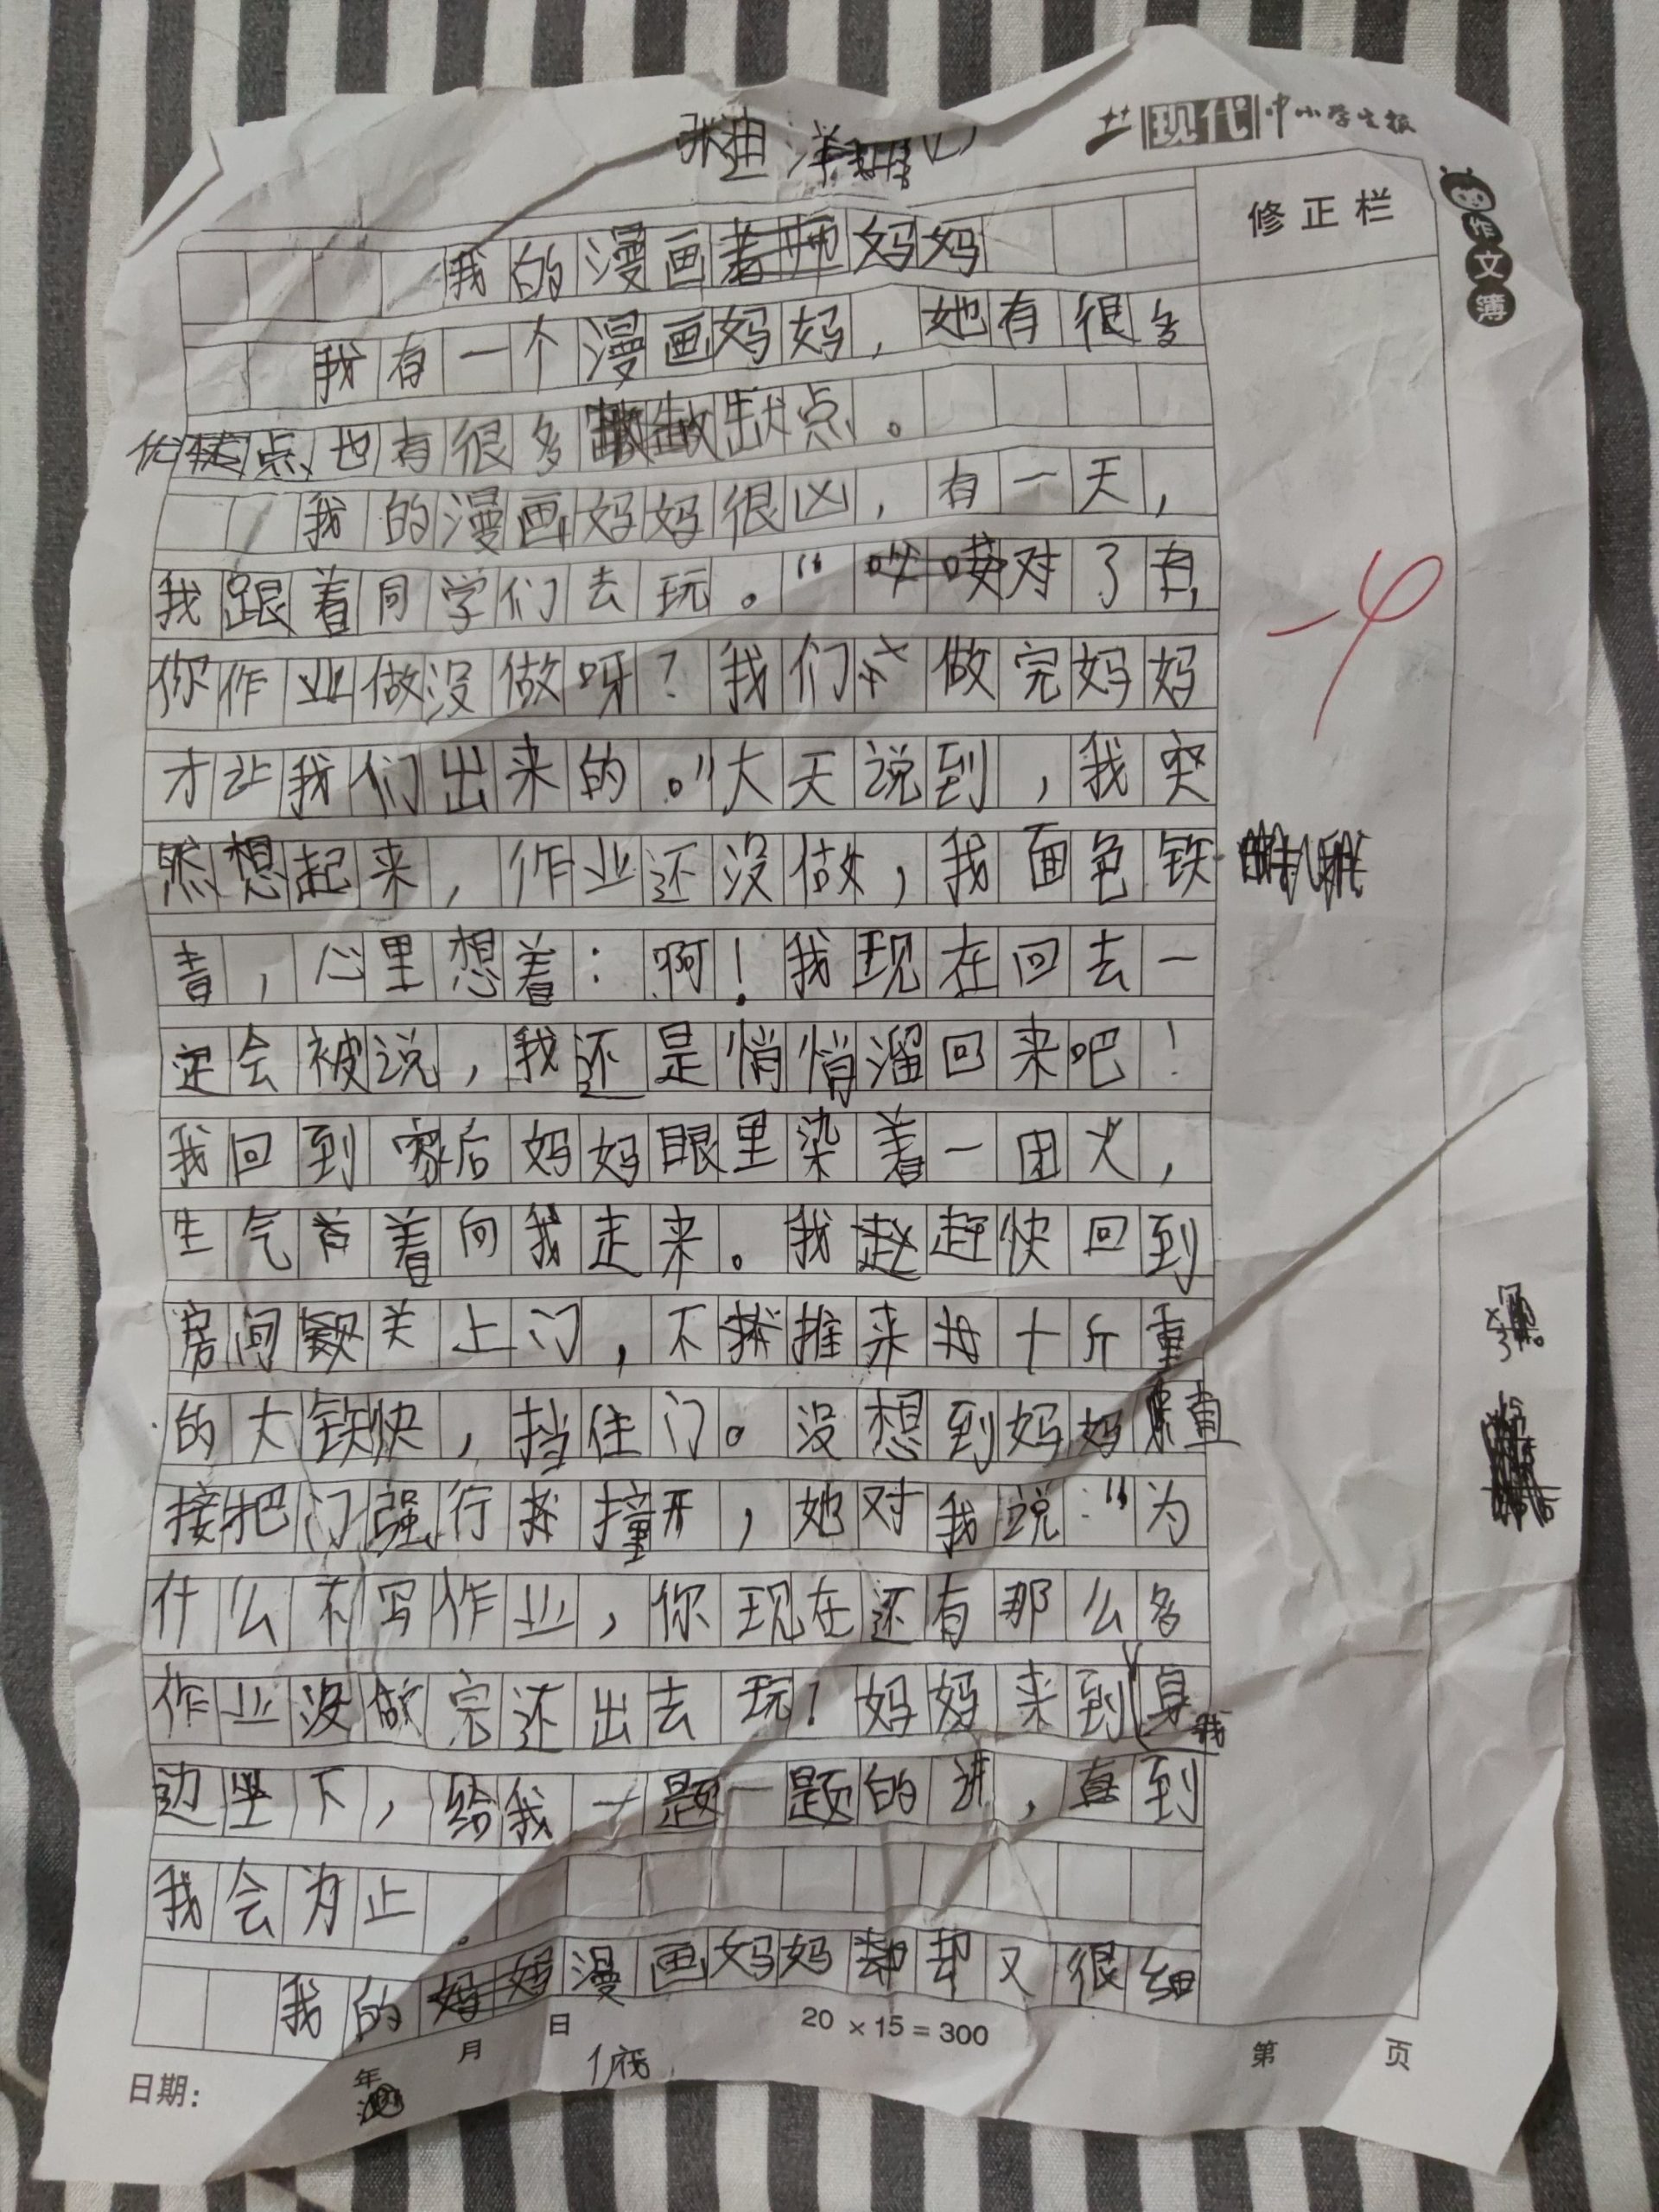 张迪洋
现代中小学生报
修正栏
作文簿
我的漫画妈妈
我有一个漫画妈妈，她有很多
优点也有很多缺点。
我的漫画妈妈很凶，有一天，
我跟着同学们去玩。“对了
-4
你作业做没做呀？我们做完妈妈
才让我们出来的。”大天说到，我突
然想起来，作业还没做，我面色铁
青，心里想着：啊！我现在回去一
定会被说，我还是悄悄溜回来吧！
我回到家后妈妈眼里染着一团火，
生气着向我走来。我赶快回到
房间关上门，不推来十斤重
的大铁快，挡住门。没想到妈妈直
接把门强行撞开，她对我说：“为
什么不写作业，你现在还有那么多
作业没做完还出去玩？妈妈来到我身
边坐下，给我一题一题的讲，直到
我会为止。
我的漫画妈妈却又很细
20×15=300
日期： 年 月 日
第 页